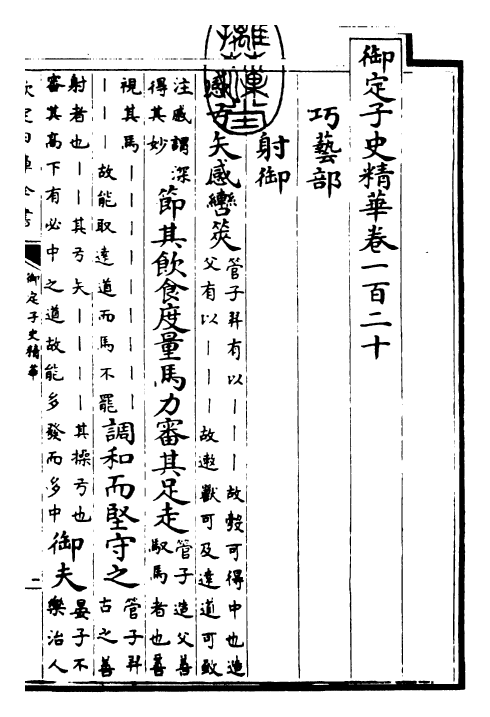 御定子史精華卷一百二十
巧藝部
射御
感弓矢感轡筴
管子羿有以｜｜｜故彀可得中也造
父有以｜｜｜故遬獸可及遠道可致
注感謂深
得其妙
節其飲食度量馬力審其足走
管子造父善
馭馬者也善
視其馬｜｜｜｜｜｜｜
｜｜｜｜故能取遠道而馬不罷
調和而堅守之
管子羿
古之善
射者也｜｜其弓矢｜｜｜｜其操弓也
審其高下有必中之道故能多發而多中
御夫
晏子不
樂治人
欽定四庫全書
御定子史精華